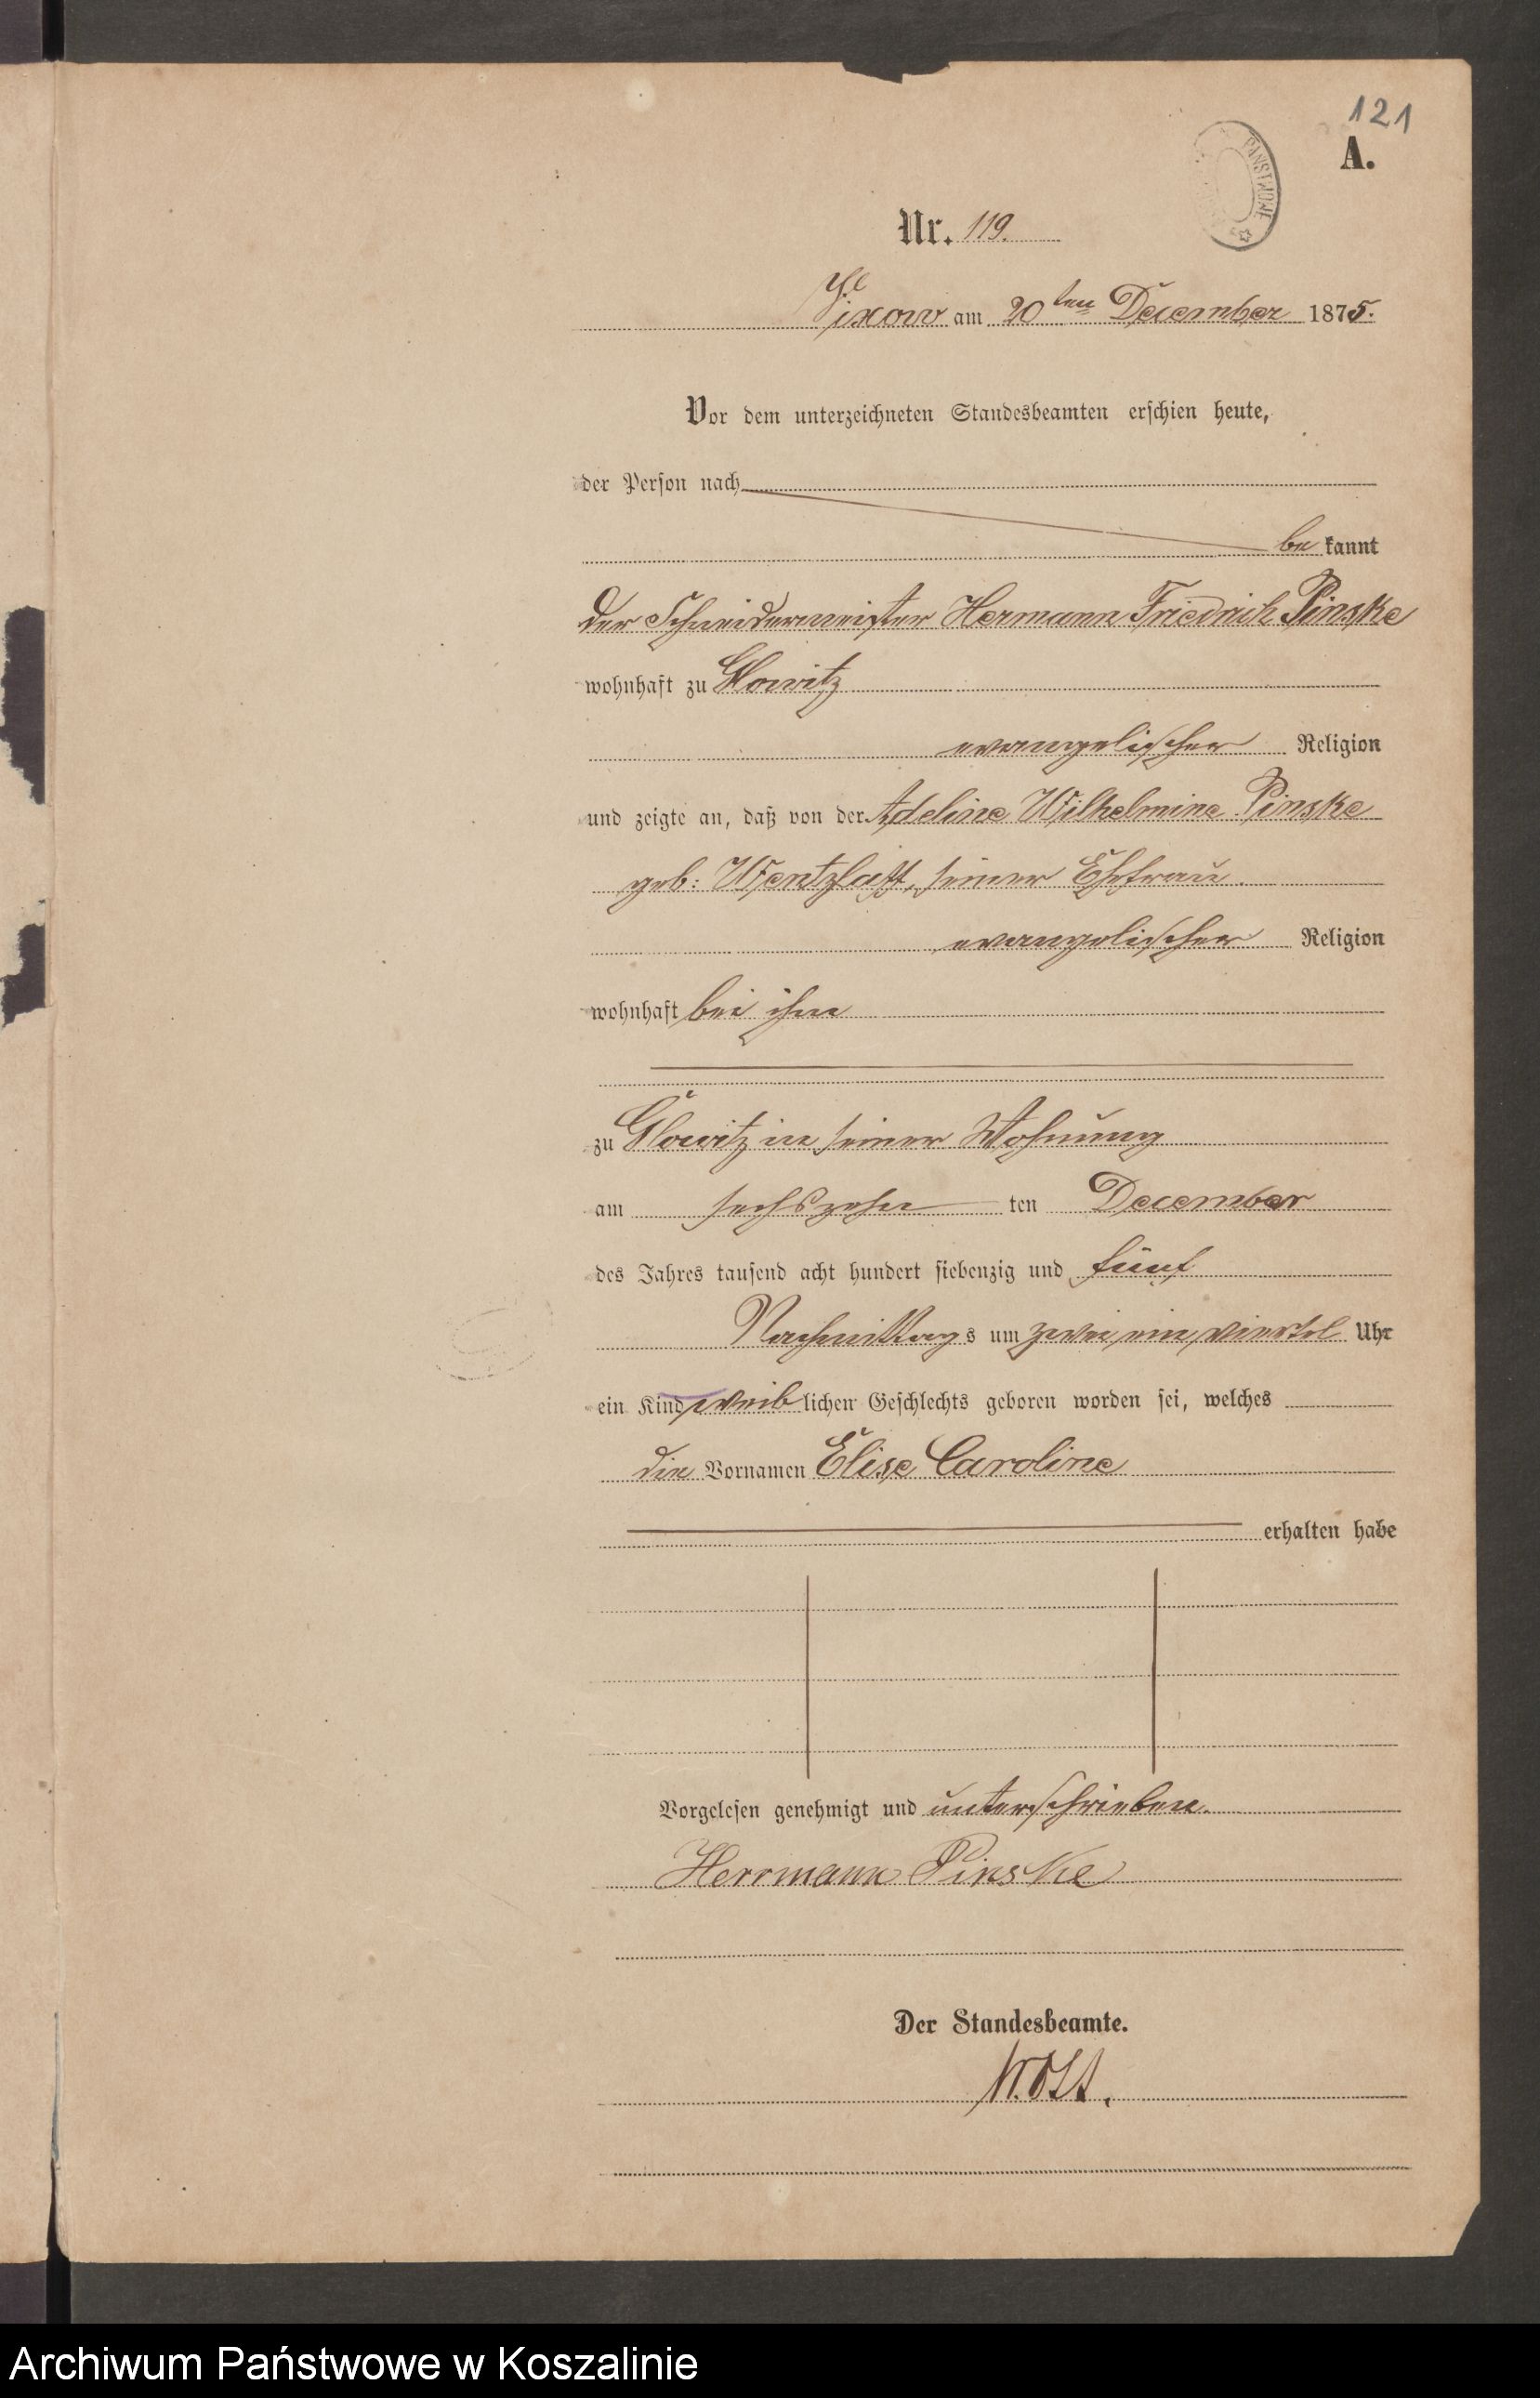 121
A.
PAŃSTWOWE
Nr. 119.
am 20ten December 1875.
Vor dem unterzeichneten Standesbeamten erschien heute,
der Person nach
be kannt
der Schneidermeister Hermann Friedrich Pinske
wohnhaft zu Glowitz
evangelischer Religion
und zeigte an, daß von der Adeline Wilhelmine Pinske
geb: Wentzlaff, seiner Ehefrau
evangelischer Religion
wohnhaft bei ihm
zu Glowitz in seiner Wohnung
am sechszehn ten December
des Jahres tausend acht hundert siebenzig und fünf
Nachmittags um zwei ein viertel Uhr
ein Kind weiblichen Geschlechts geboren worden sei, welches
die Vornamen Elise Caroline
erhalten habe
Vorgelesen genehmigt und unterschrieben.
Herrmann Pinske
Der Standesbeamte.
Archiwum Państwowe w Koszalinie